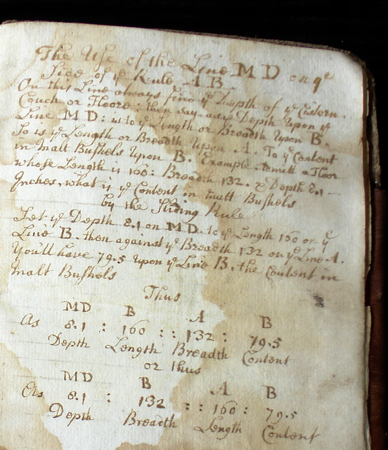 The Use of the Line MD on ye
Side of ye Rule AB
On this Line always find ye Depth of ye Cistern
Couch or Floore: they say as ye Depth upon ye
Line MD: is to ye Length or Breadth upon B.
So is ye Length or Breadth upon A. To ye Content
in Malt Bushels Upon B. Example Floor
whose Length is 160: Breadth 132. & Depth 8.1
Inches, what is ye Content in Malt Bushels
by the Sliding Rule
Set ye Depth 8.1 on MD. to ye Length 160 on ye
Line B. then against ye Breadth 132 on ye Line A.
You'll have 79.5 upon ye Line B. the Content in
Malt Bushels
Thus
MD B A B
As 8.1 : 160 :: 132 : 79.5
Depth Length Breadth Content
or thus
MD B A B
As 8.1 : 132 :: 160 : 79.5
Depth Breadth Length Content